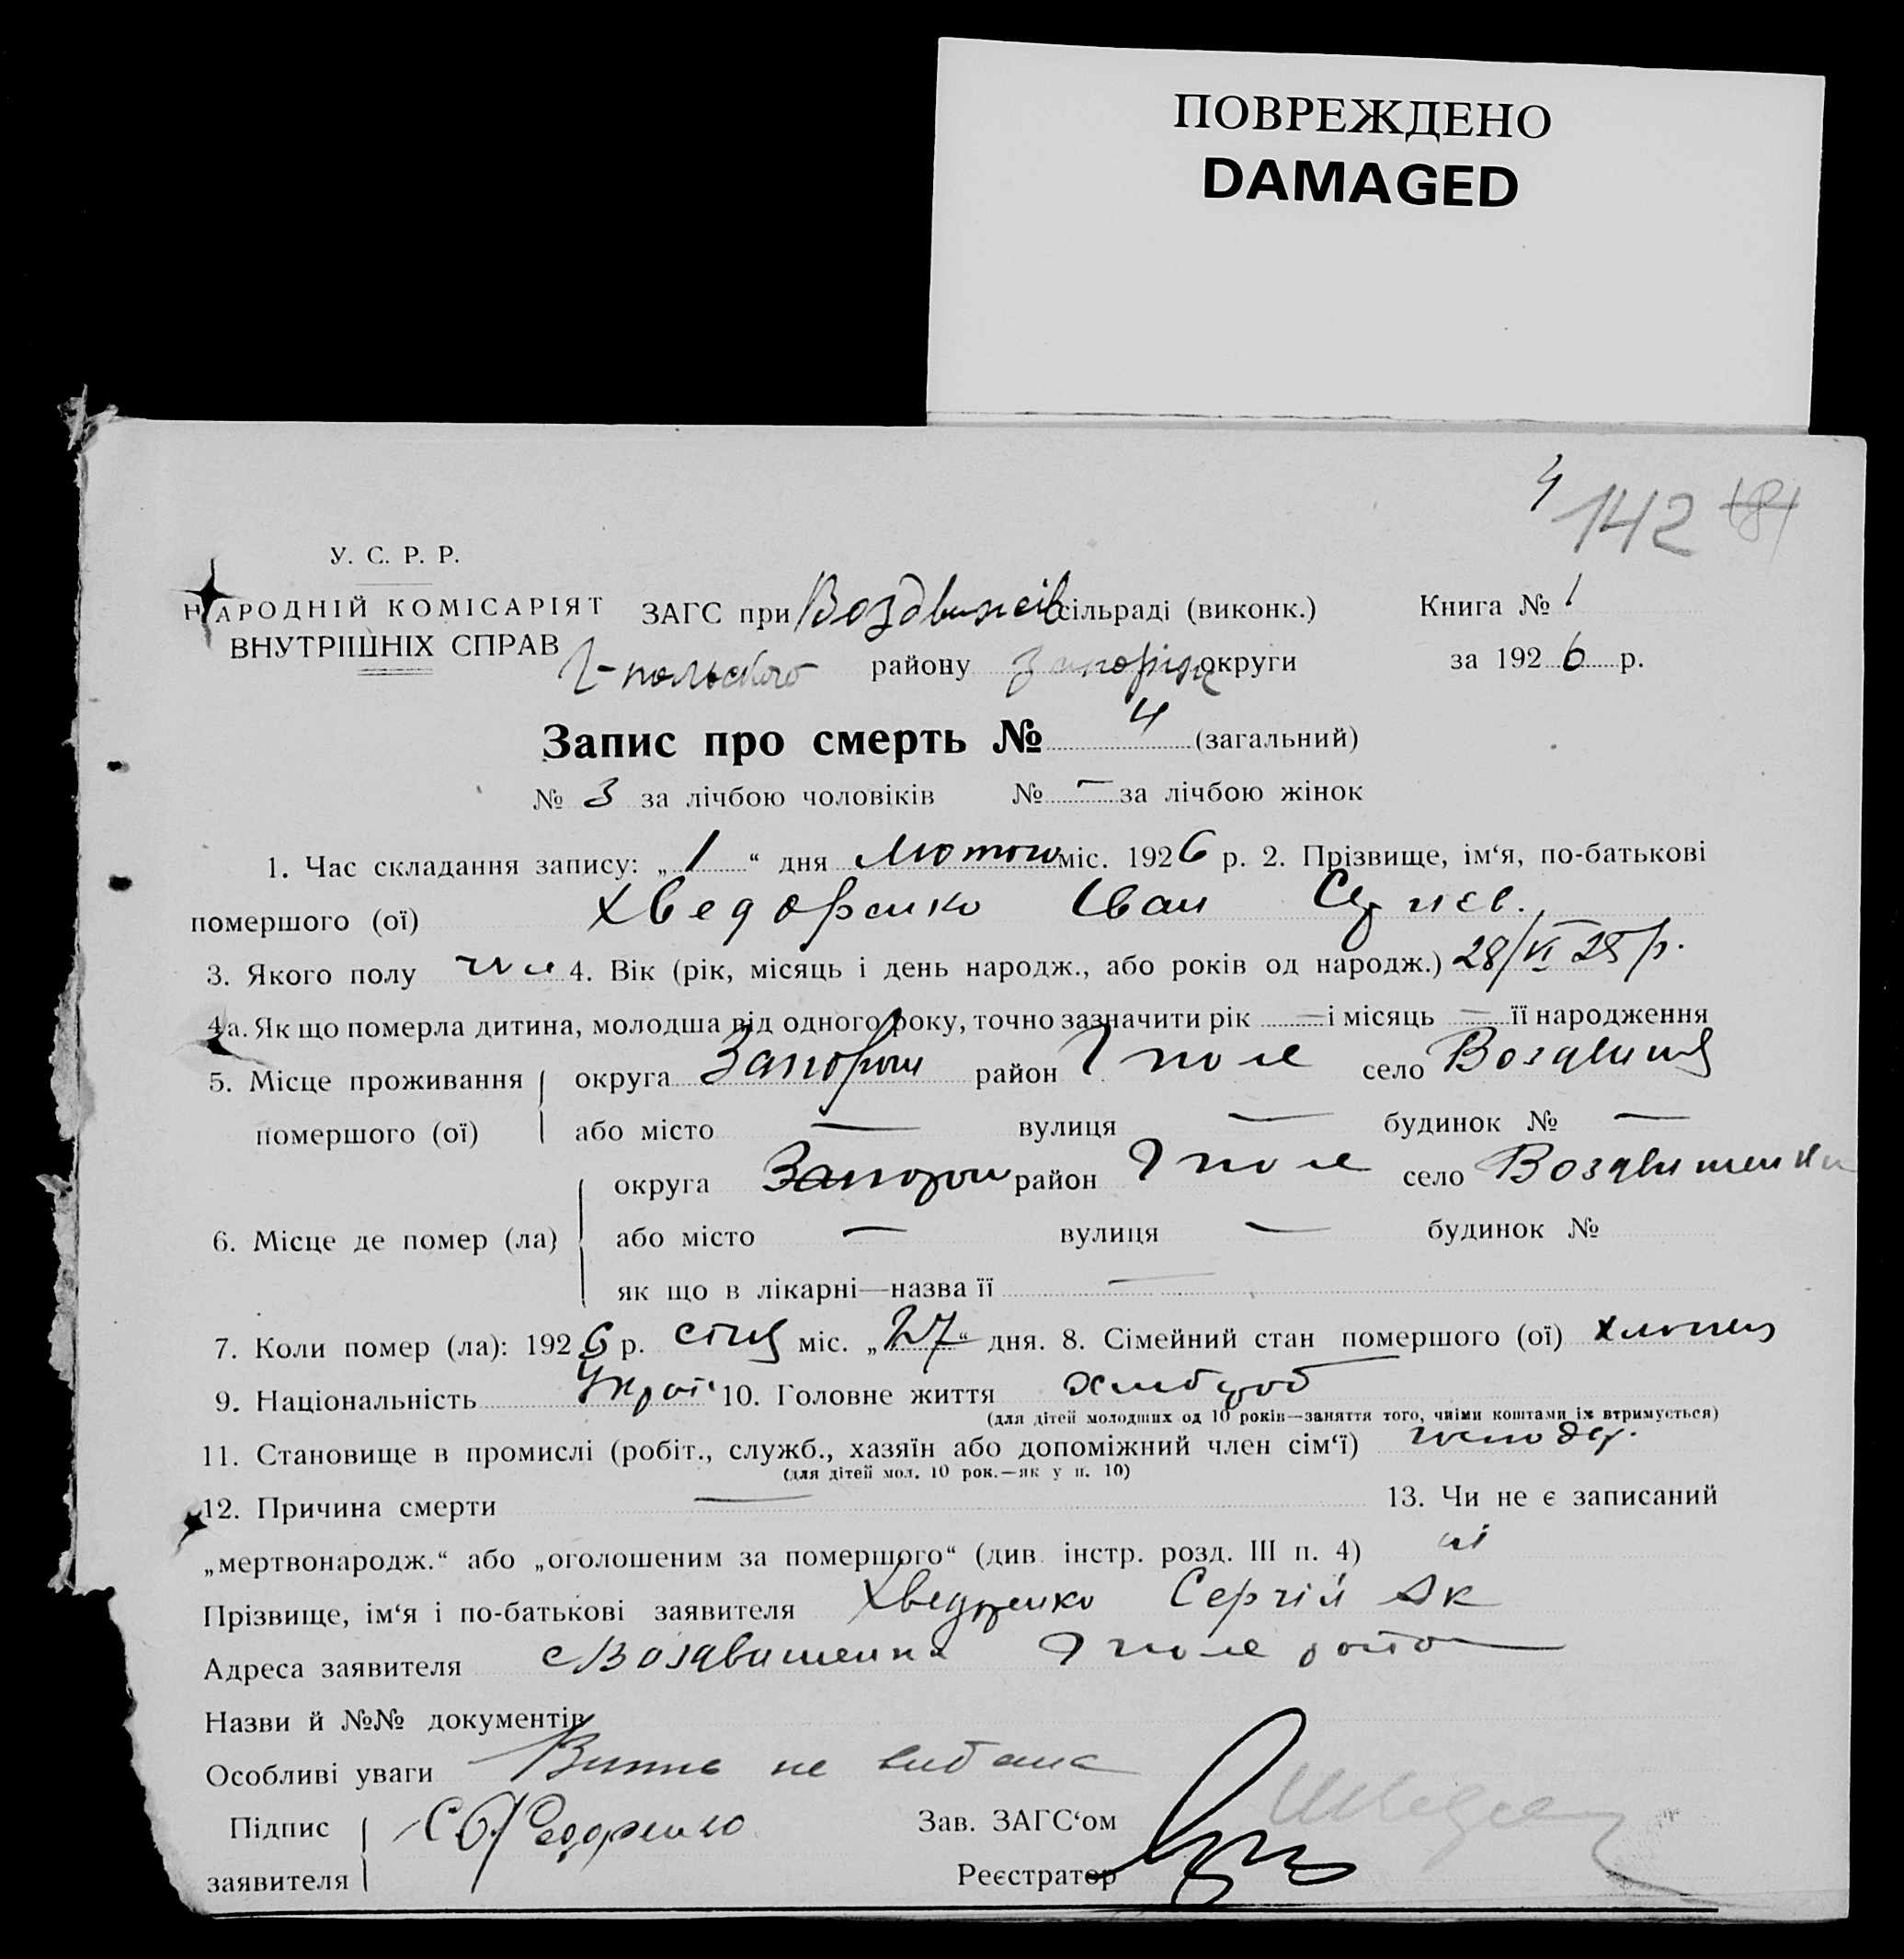 ПОВРЕЖДЕНО
DAMAGED
4
142 181
У. С. Р. Р.
НАРОДНІЙ КОМІСАРІЯТ
ВНУТРІШНІХ СПРАВ
ЗАГС при Воздвижсів сільраді (виконк.) Книга № 1
Г-польского району Запоріж округи за 1926 р.
Запис про смерть № 4 (загальний)
№ 3 за лічбою чоловіків № — за лічбою жінок
1. Час складання запису: „1“ дня Лютого міс. 1926 р. 2. Прізвище, ім‘я, по-батькові
помершого (ої) Хведоренко Іван Сергієв.
3. Якого полу 4. Вік (рік, місяць і день народж., або років од народж.) 28/VI 25 р.
4а. Як що померла дитина, молодша від одного року, точно зазначити рік — і місяць — її народження
5. Місце проживання округа Запорож район Г поле село Воздвиж
помершого (ої) або місто — вулиця — будинок № —
округа Запорож район Г поле село Воздвиженки
6. Місце де помер (ла) або місто — вулиця — будинок №
як що в лікарні—назва її —
7. Коли помер (ла): 1926 р. січ міс. „27“ дня. 8. Сімейний стан помершого (ої) хлопець
9. Національність Украї 10. Головне життя хлібороб
(для дітей молодших од 10 років—заняття того, чиїми коштами їх втримується)
11. Становище в промислі (робіт., служб., хазяїн або допоміжний член сім‘ї) господар.
(для дітей мол. 10 рок.—як у п. 10)
12. Причина смерти — 13. Чи не є записаний
„мертвонародж.“ або „оголошеним за помершого“ (див. інстр. розд. III п. 4) ні
Прізвище, ім‘я і по-батькові заявителя Хведоренко Сергій Як
Адреса заявителя с Воздвиженка Г поле район
Назви й №№ документів
Особливі уваги Випис не видана
Підпис С. Федоренко Зав. ЗАГС‘ом
заявителя Реєстратор